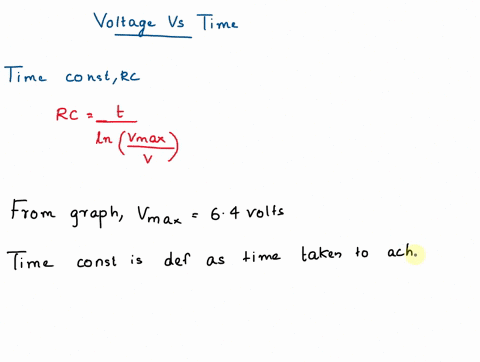 Voltage Vs Time
Time const, RC
RC = t / ln (Vmax / V)
From graph, Vmax = 6.4 volts
Time const is def as time taken to ach